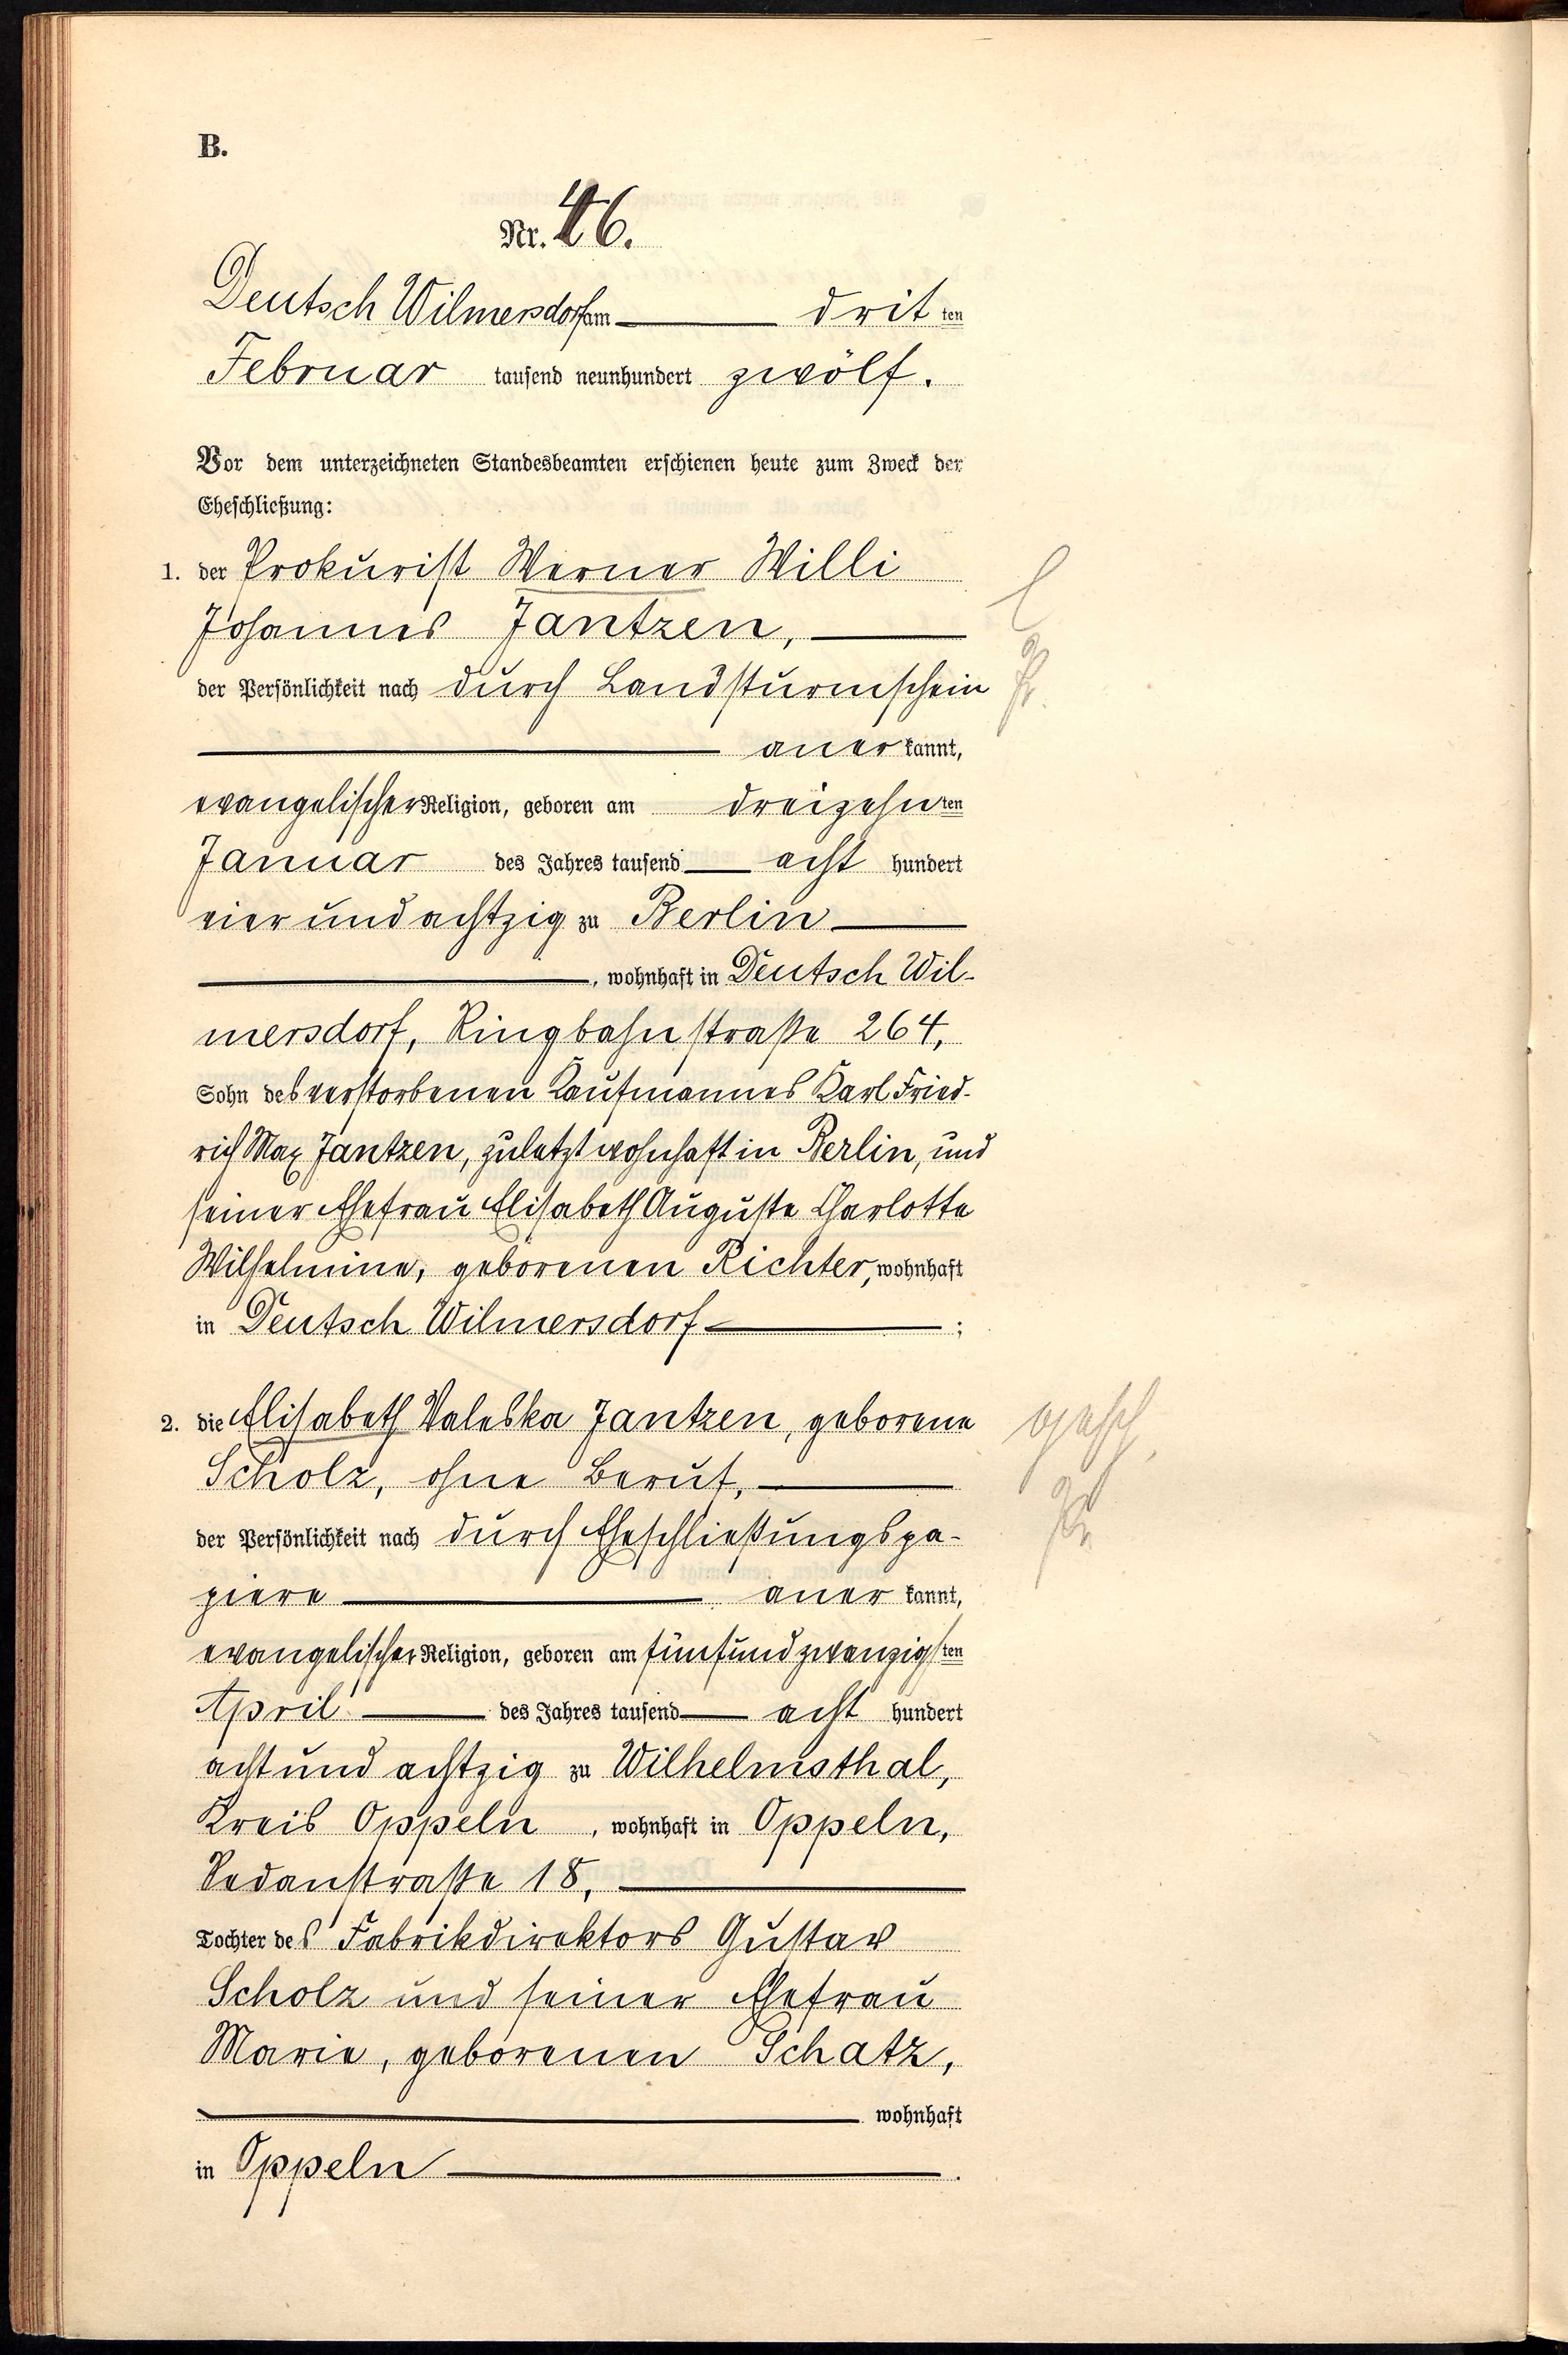 B.
Nr. 46.
Deutsch Wilmersdorf am drit ten
Februar tausend neunhundert zwölf.
Vor dem unterzeichneten Standesbeamten erschienen heute zum Zweck der
Eheschließung:
1. der Prokurist Werner Willi
Johannes Jantzen,
der Persönlichkeit nach durch Landsturmschein
aner kannt,
evangelischer Religion, geboren am dreizehn ten
Januar des Jahres tausend acht hundert
vier und achtzig zu Berlin
, wohnhaft in Deutsch Wil-
mersdorf, Ringbahnstraße 264,
Sohn des verstorbenen Kaufmannes Karl Fried-
rich Max Jantzen, zuletzt wohnhaft in Berlin, und
seiner Ehefrau Elisabeth Auguste Charlotte
Wilhelmine, geborenen Richter, wohnhaft
in Deutsch Wilmersdorf ;
2. die Elisabeth Valeska Jantzen, geborene
Scholz, ohne Beruf,
der Persönlichkeit nach durch Eheschließungspa-
piere aner kannt,
evangelischer Religion, geboren am fünfundzwanzigs ten
April des Jahres tausend acht hundert
acht und achtzig zu Wilhelmsthal,
Kreis Oppeln , wohnhaft in Oppeln,
Sedanstraße 18,
Tochter des Fabrikdirektors Gustav
Scholz und seiner Ehefrau
Marie, geborenen Schatz,
wohnhaft
in Oppeln .
gesch.